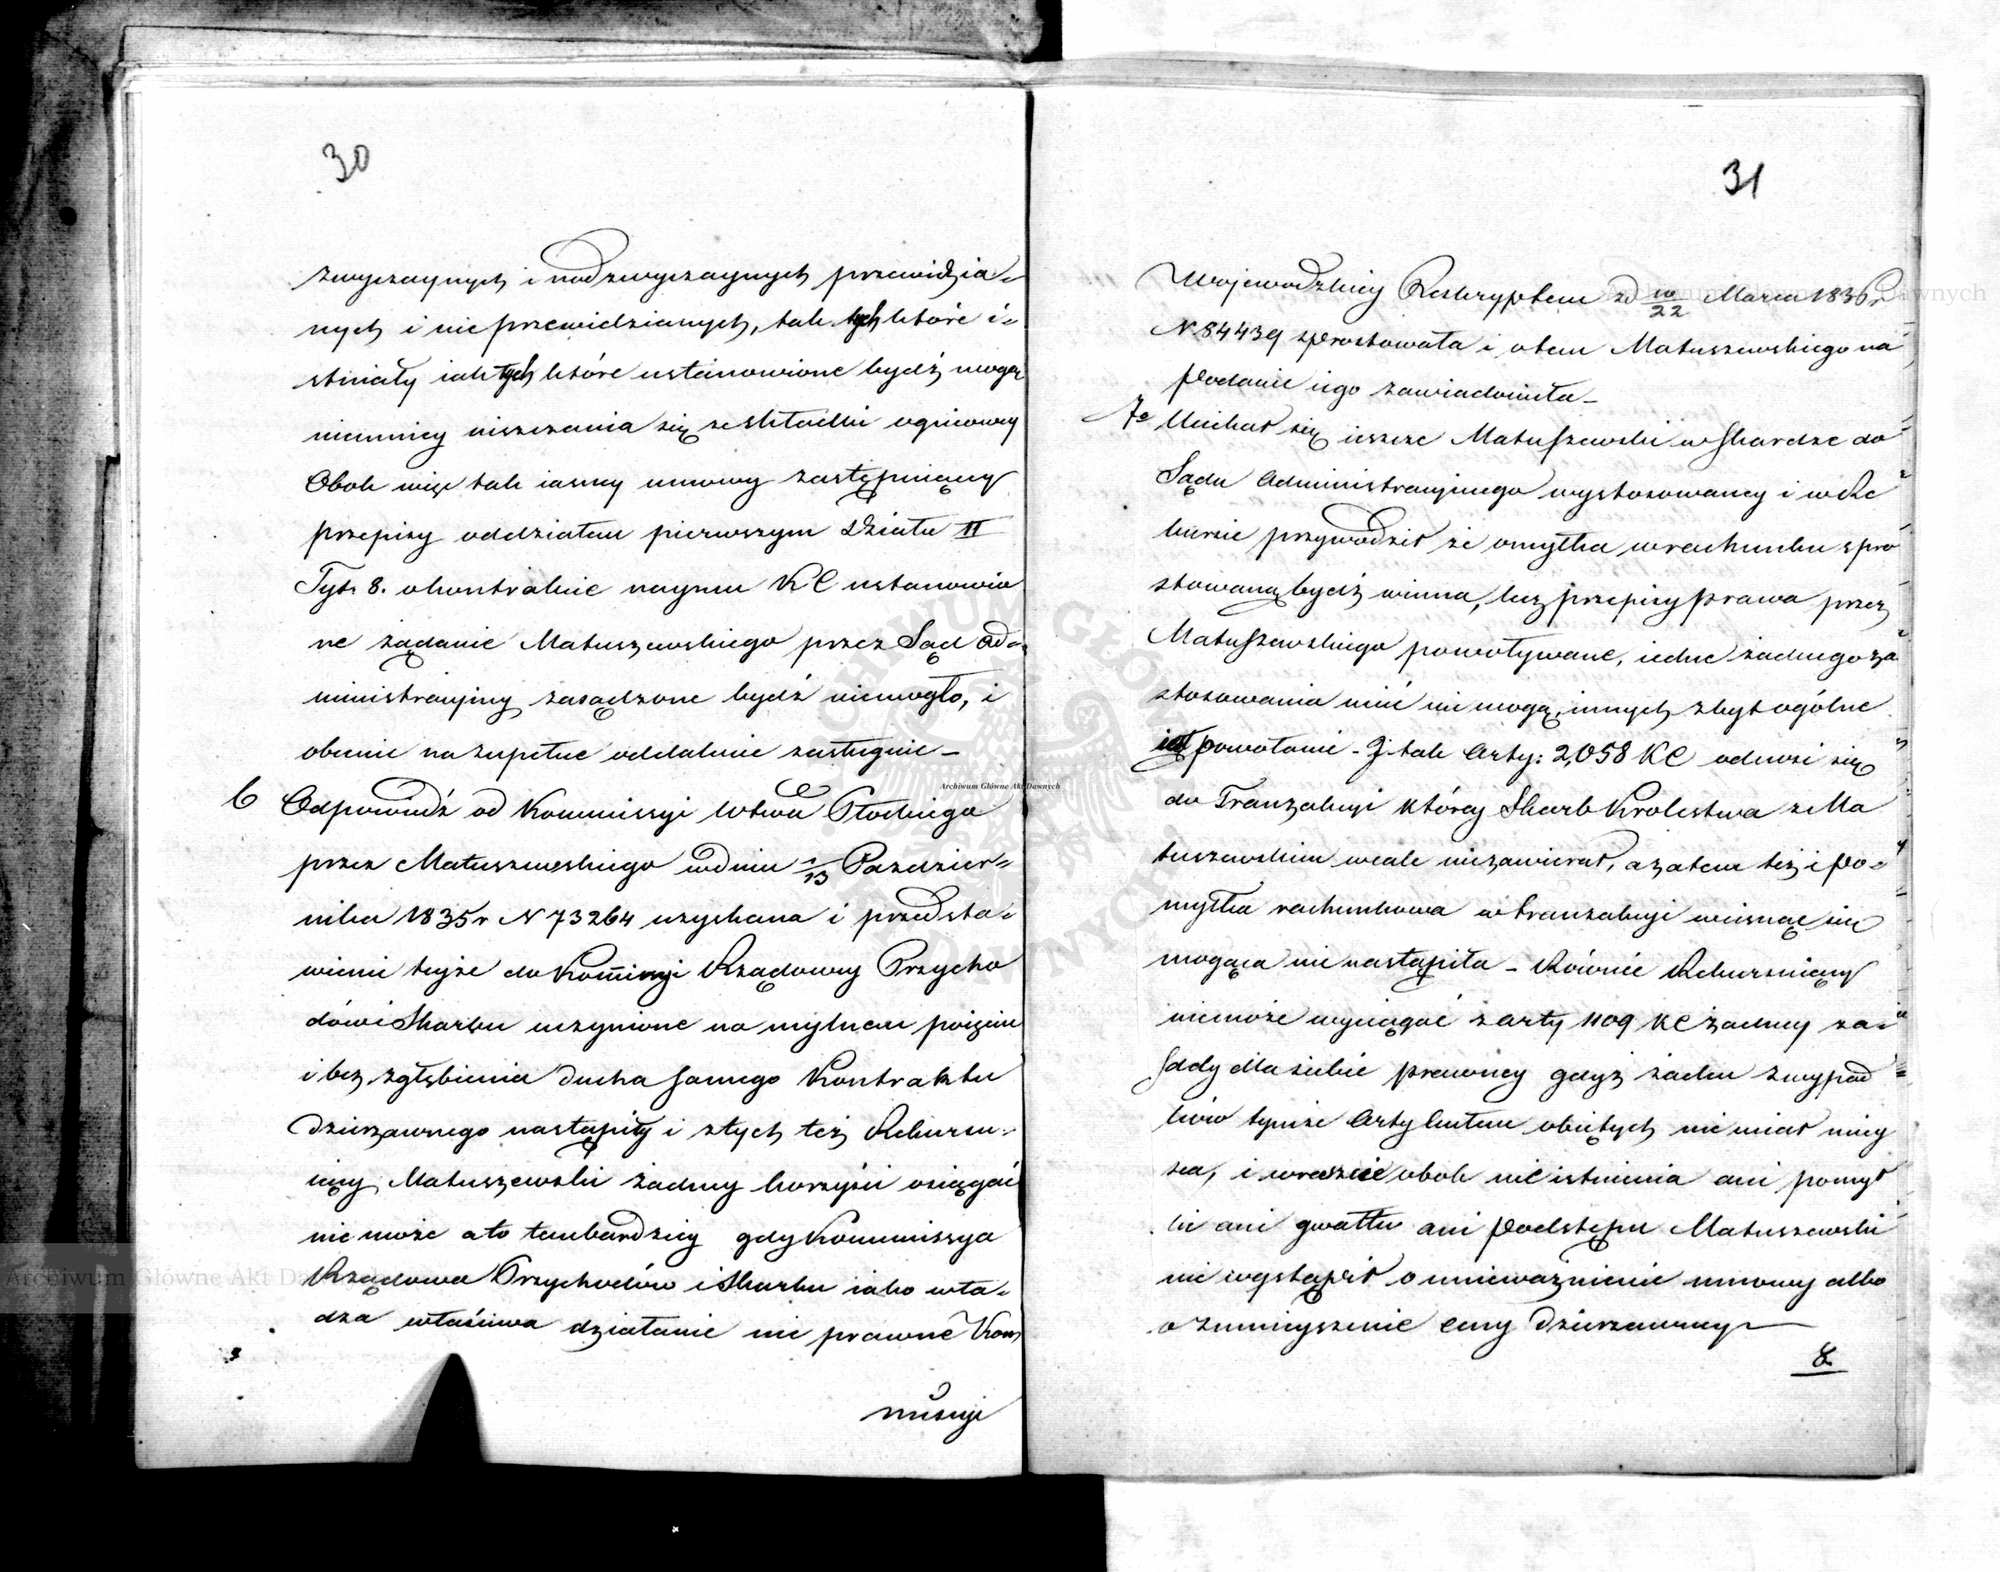 30
zwyczaynych i nadzwyczaynych przewidzia-
nych i nie przewidzianych, tak tych które i-
stniały iak tych które ustanowione bydź mogą
niemniey uiszczania się ze składki ogniowey
Obok więc tak iasney umowy zastępuiącey
przepisy oddziałem pierwszym Działu II
Tyt. 8. o kontrakcie naymu KC ustanowio
ne żądanie Matuszewskiego przez Sąd Ad-
ministracyiny zasądzone bydź niemogło, i
obecnie na zupełne oddalenie zasługuie -
6 Odpowiedź od Kommissyi Wtwa Płockiego
przez Matuszewskiego w dniu 1/13 Paździer-
nika 1835 r N 73264 uzyskana i przedsta-
wienie teyże do Kommissyi Rządowey Przycho
dów i Skarbu uczynione na mylnem poięciu
i bez zgłębienia ducha samego Kontraktu
Dzierżawnego nastąpiły i z tych też Rekursu-
iący Matuszewski żadney korzyści osiągać
nie może a to tembardziey gdy Kommissya
Rządowa Przychodów i Skarbu iako wła-
dza właściwa działanie nie prawne Kom
missyi
31
Wojewodzkiey Reskryptem z d 10/22 Marca 1836 r.
N 84439 sprostowała i o tem Matuszewskiego na
podanie iego zawiadomiła -
7o Uciekał się ieszcze Matuszewski w Skardze do
Sądu Administracyjnego wystosowaney i w Re
kursie przywodził że omyłka w rachunku spro
stowaną bydź winna, lecz przepisy prawa przez
Matuszewskiego powoływane, iedne żadnego za
stosowania mieć nie mogą, innych zbyt ogólne
iest powołanie - I tak Arty: 2,058 KC odnosi się
do Tranzakcyi którey Skarb Krolestwa z Ma
tuszewskim wcale niezawierał, a zatem też i po-
myłka rachunkowa w tranzakcyi wcisnąć się
mogąca nie nastąpiła - Równie Rekursuiący
niemoże wyciągać z arty 1109 KC żadney za-
sady dla siebie prawney gdyż żaden z wypad
ków tymże Artykułem obiętych nie miał miey
sca, i wreszcie obok nieistnienia ani pomył
ki ani gwałtu ani podstępu Matuszewski
nie wystąpił o unieważnienie umowy albo
o zmnieyszenie ceny Dzierżawney
8.
Archiwum Główne Akt Dawnych